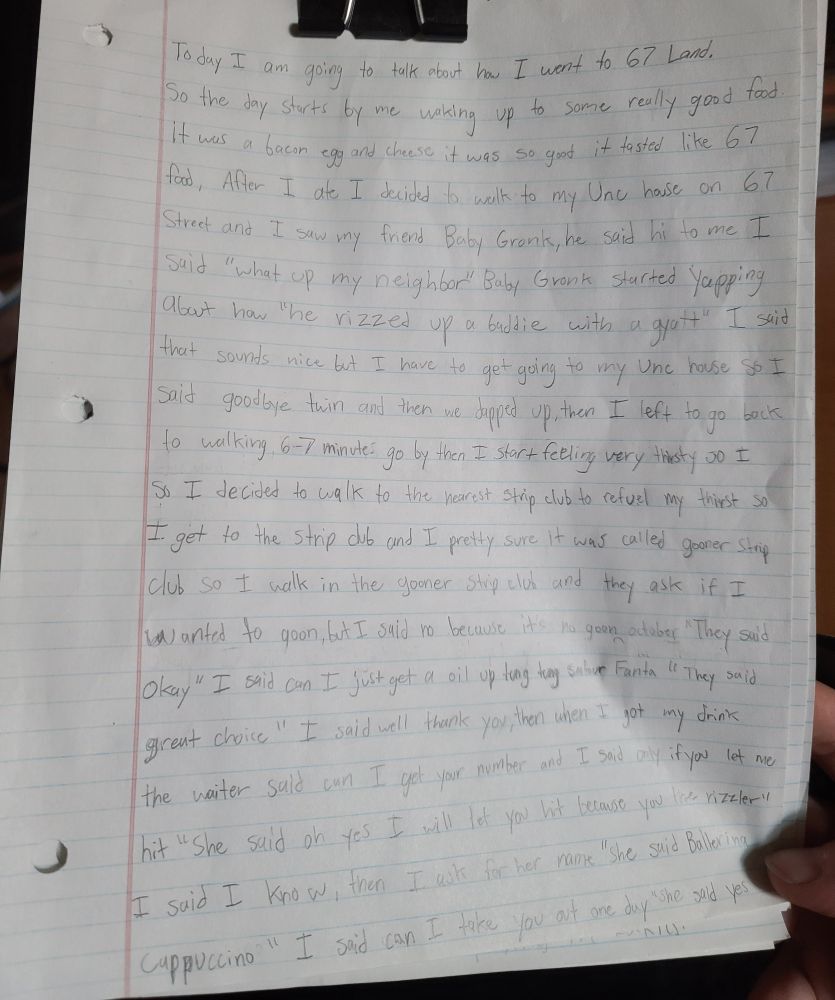 Today I am going to talk about how I went to 67 Land.
So the day starts by me waking up to some really good food.
it was a bacon egg and cheese it was so good it tasted like 67
food, After I ate I decided to walk to my Unc house on 67
Street and I saw my friend Baby Gronk, he said hi to me I
said "what up my neighbor" Baby Gronk started Yapping
about how "he rizzed up a baddie with a gyatt" I said
that sounds nice but I have to get going to my Unc house so I
said goodbye twin and then we dapped up, then I left to go back
to walking, 6-7 minutes go by then I start feeling very thirsty so I
so I decided to walk to the nearest strip club to refuel my thirst so
I get to the strip club and I pretty sure it was called gooner strip
club so I walk in the gooner strip club and they ask if I
wanted to goon, but I said no because it's no goon october "They said
Okay" I said can I just get a oil up tung tung sahur Fanta "They said
great choice" I said well thank you, then when I got my drink
the waiter said can I get your number and I said only if you let me
hit "She said oh yes I will let you hit because you the rizzler"
I said I know, then I ask for her name "She said Ballerina
Cappuccino" I said can I take you out one day "she said yes